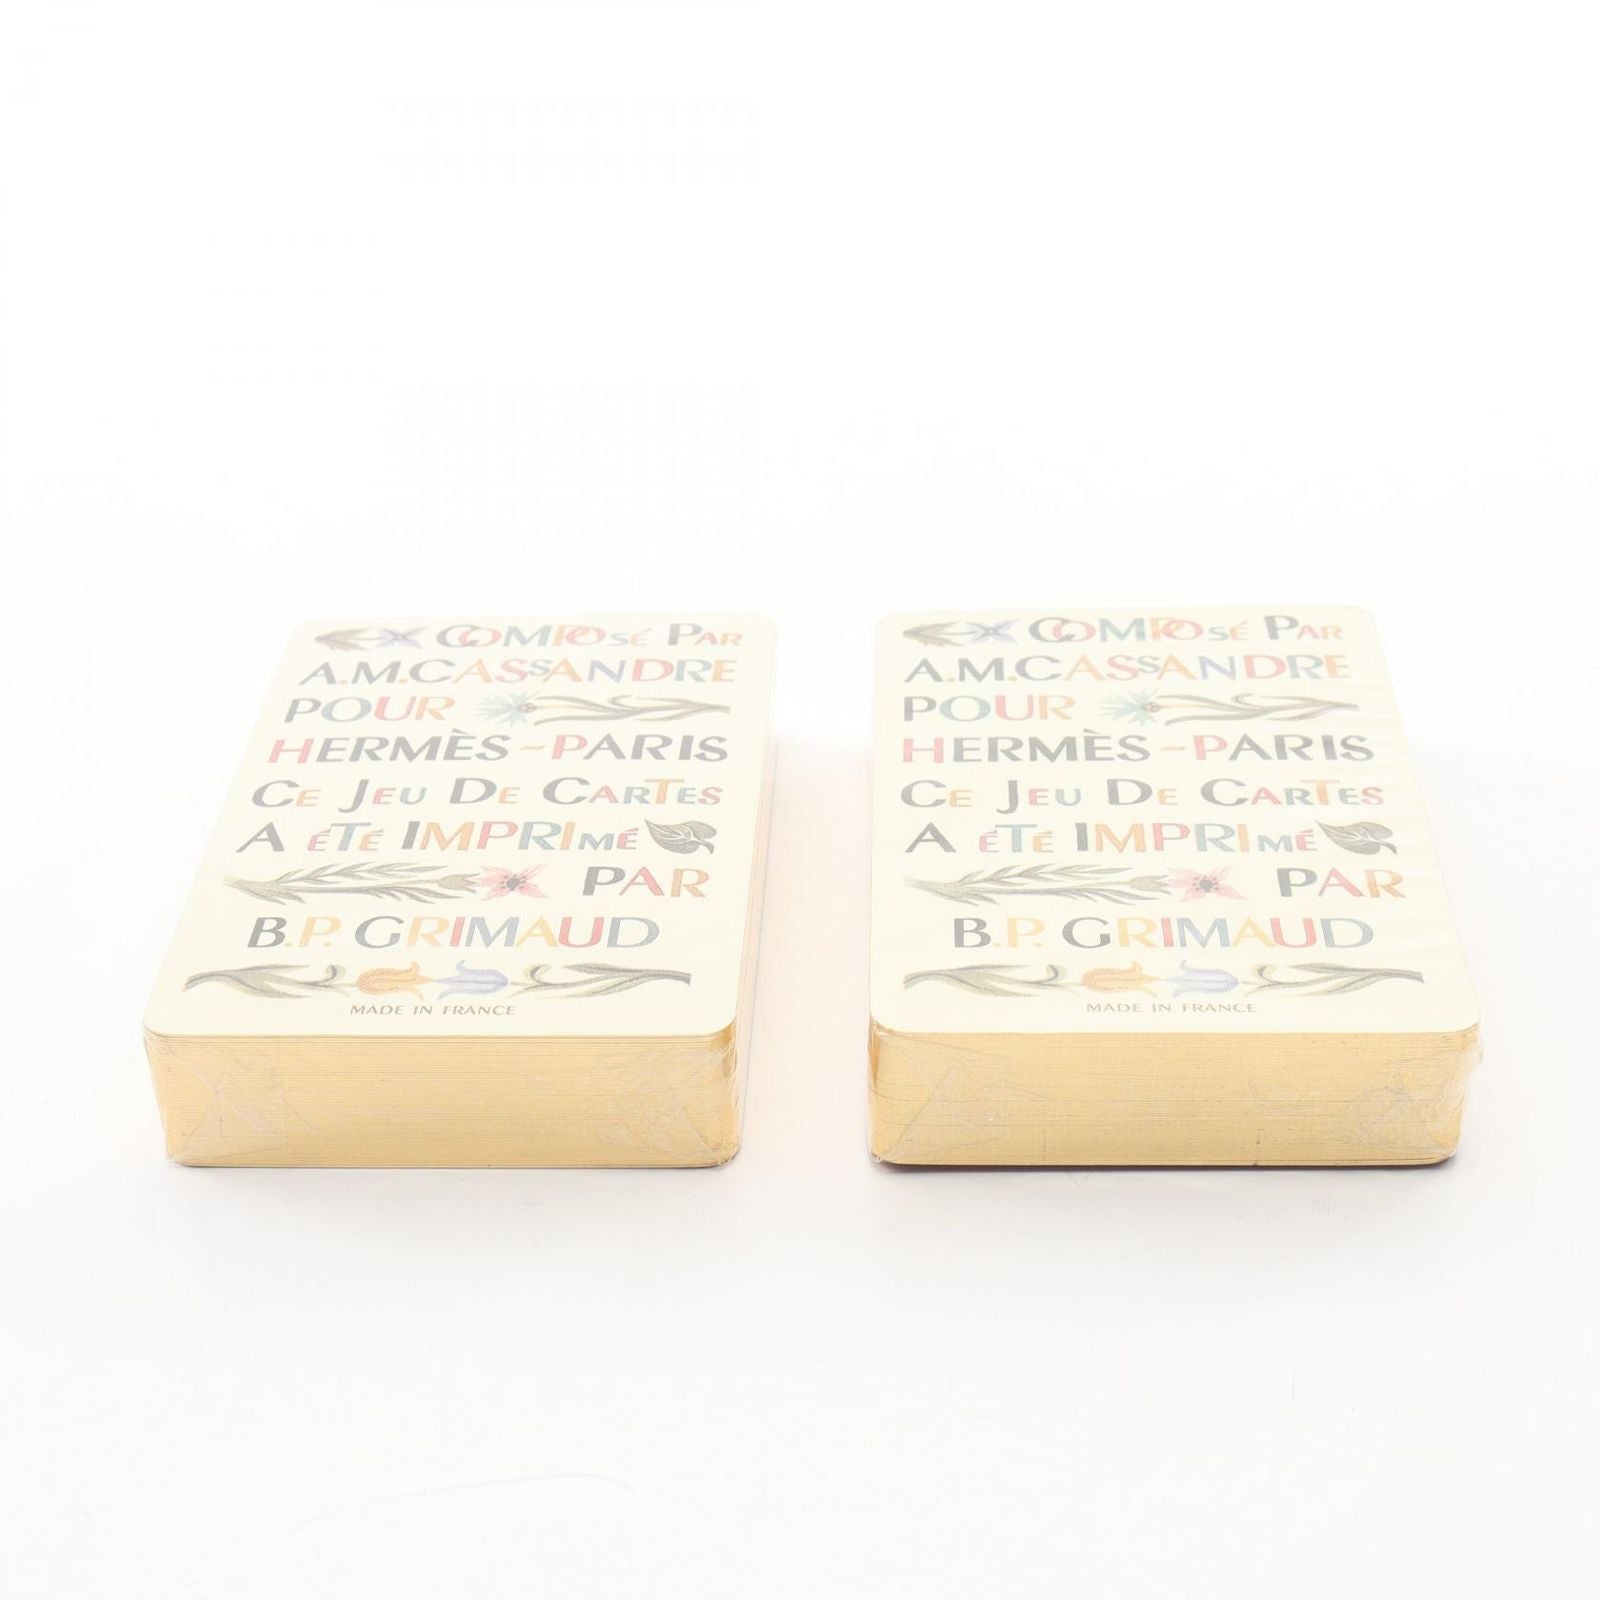 COMPOSÉ PAR
A.M.CASSANDRE
POUR
HERMÈS~PARIS
CE JEU DE CARTES
A ÉTÉ IMPRIMÉ
PAR
B.P. GRIMAUD
MADE IN FRANCE
COMPOSÉ PAR
A.M.CASSANDRE
POUR
HERMÈS~PARIS
CE JEU DE CARTES
A ÉTÉ IMPRIMÉ
PAR
B.P. GRIMAUD
MADE IN FRANCE